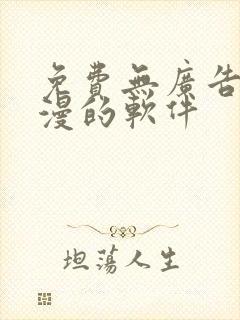 免費無廣告
漫的軟件
坦蕩人生